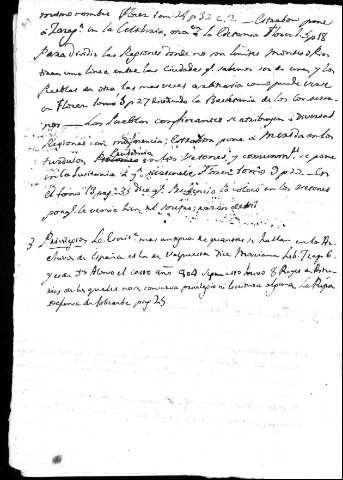 mismo nombre Florez tom 24 p 32 c. 2 — Estrabon pone
a Zarag.ª en la Celtiberia, otros en la Edetania Florez t. 5 p 18
Para dividir las Regiones donde no son limites montes o Rios
tiran una linea entre las Ciudades q.e sabemos ser de una, y los
Pueblos de otra las mas veces arbitraria como puede verse
en Florez tomo 5 p 27 dividiendo la Bastitania de los Contesta-
nos — Los Pueblos confinantes se atribuyen a diversas
Regiones con indiferencia; Estrabon pone a Merida en los
Turdulos, Prudencio en los Vetones, y comunm.te se pone
en la Lusitania a q.e pertenece Florez tomo 9 p 22 — Con
el tomo 13 pag. 25 dice q.e Prudencio la colocó en los vetones
porq.e le venia bien al
3 Privilegios La Escrit.ª mas antigua de quantas se hallan en los Ar-
chivos de España es la de Valpuesta dice Mariana Lib. 7 cap 6.
y es de D.n Alonso el Casto año 804 Supuesto hubo 8 Reyes de Astu-
rias de los quales no se conserva privilegio ni escritura alguna. La Ripa
Defensa de Sobrarbe pag 25